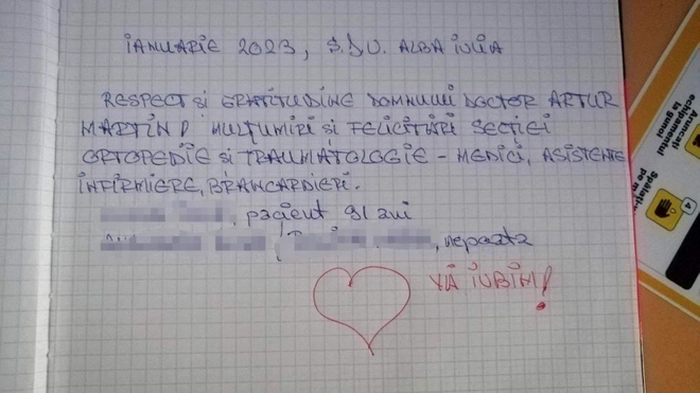 IANUARIE 2023, S.J.U. ALBA IULIA
RESPECT ȘI GRATITUDINE DOMNULUI DOCTOR ARTUR
MARTIN ! MULȚUMIRI ȘI FELICITĂRI SECȚIEI
ORTOPEDIE ȘI TRAUMATOLOGIE - MEDICI, ASISTENTE
INFIRMIERE, BRANCARDIERI.
, pacient 91 ani
, nepoata
VĂ IUBIM!
Aruncați
echipamentul
la gunoi
4
Spălați